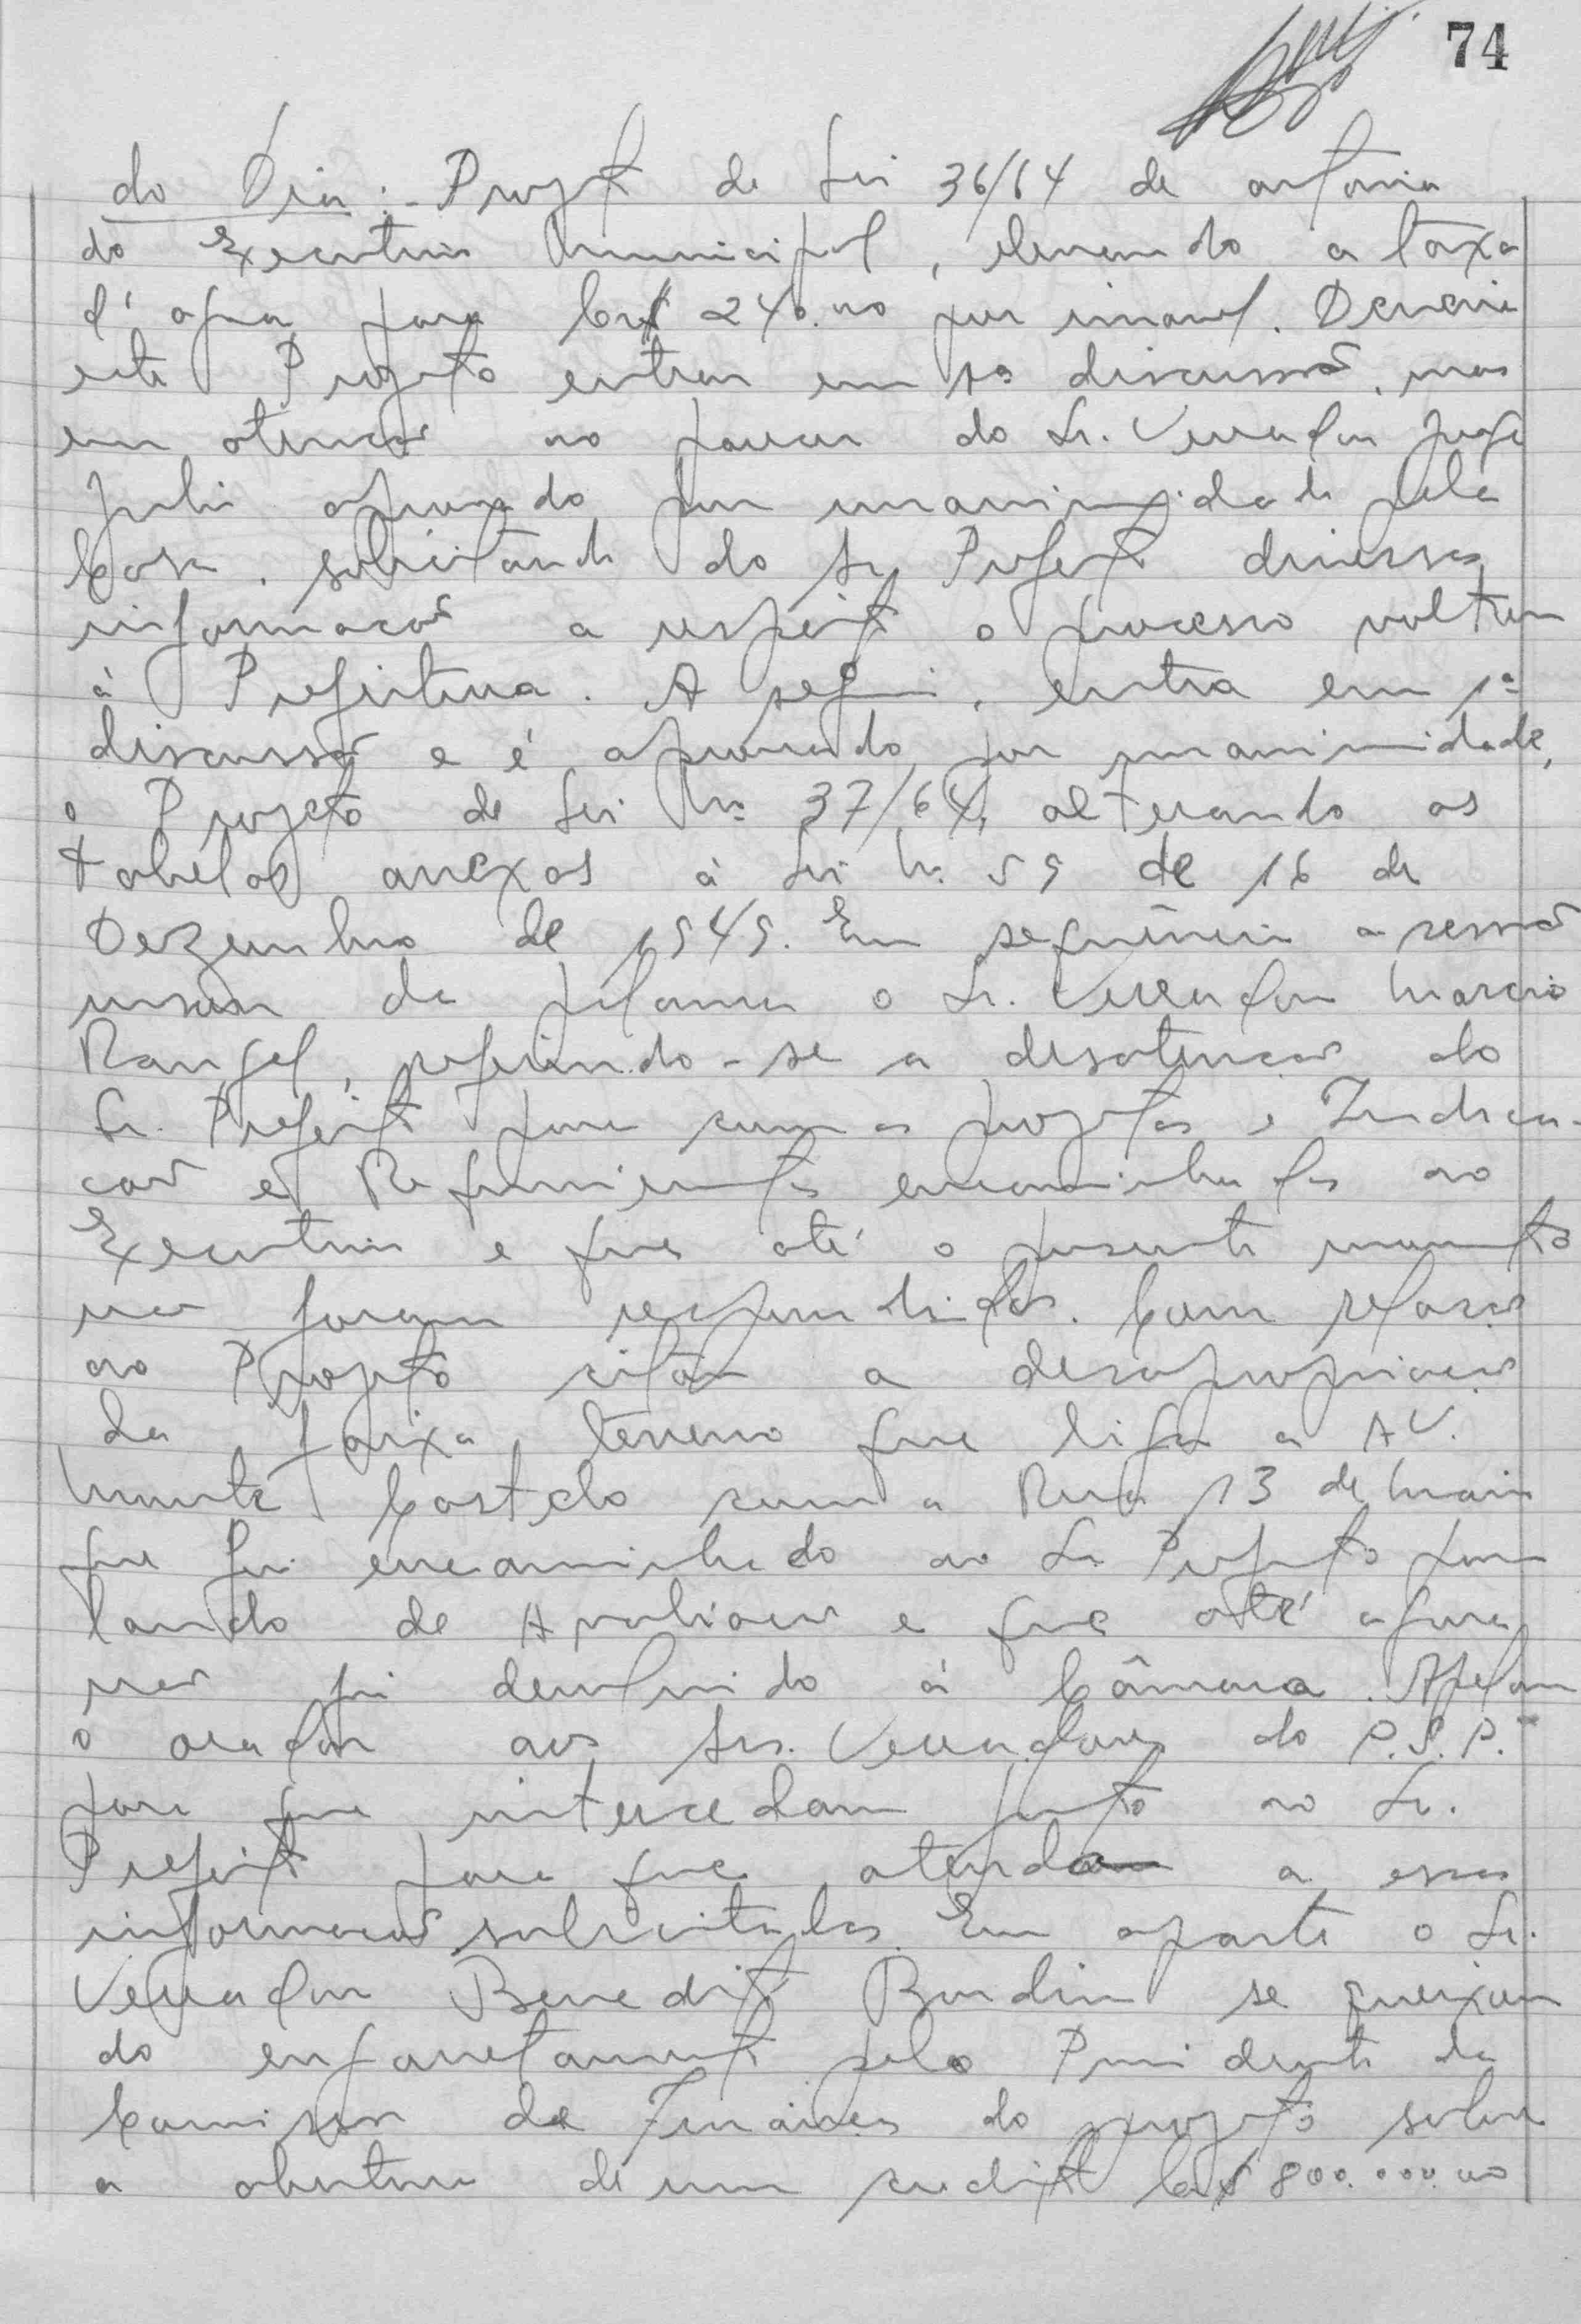 74
do Dia:- Projeto de Lei 36/64 de autoria
do Executivo Municipal, elevando a taxa
d'agua para Cr$ 240.00 por imovel. Deveria
este Projeto entrar em 1ª discussão, mas
em atenção ao parecer do Sr. Vereador Jorge
Julio aprovado por unanimidade pela
Casa. solicitando do Sr. Prefeito diversas
informações a respeito o processo voltou
à Prefeitura. A seguir, entra em 1ª
discussão e é aprovado por unanimidade,
o Projeto de Lei Nº 37/64, alterando as
tabelas anexas à Lei Nº 59 de 16 de
Dezembro de 1949. Em sequência a sessão
usou da palavra o Sr. Vereador Marcio
Rangel, referindo-se a desatenção do
Sr. Prefeito para com os projetos e Indica-
ção e Requerimentos encaminhados ao
Executivo e que até o presente momento
não foram respondidos. Com relação
ao Projeto citou a desapropriação
da faixa terreno que liga a AV.
Monte Castelo com a Rua 13 de Maio
que foi encaminhado ao Sr. Prefeito para
laudo de Avaliação e que até agora
não foi devolvido à Câmara. Apelou
o orador aos Srs. Vereadores do P.S.P.
para que intercedam junto ao Sr.
Prefeito para que atenda a essas
informações solicitadas. Em aparte o Sr.
Vereador Benedito Bordin se queixou
do engavetamento pelo Presidente da
Comissão de Finanças do projeto sobre
a abertura de um credito Cr$ 800.000.00